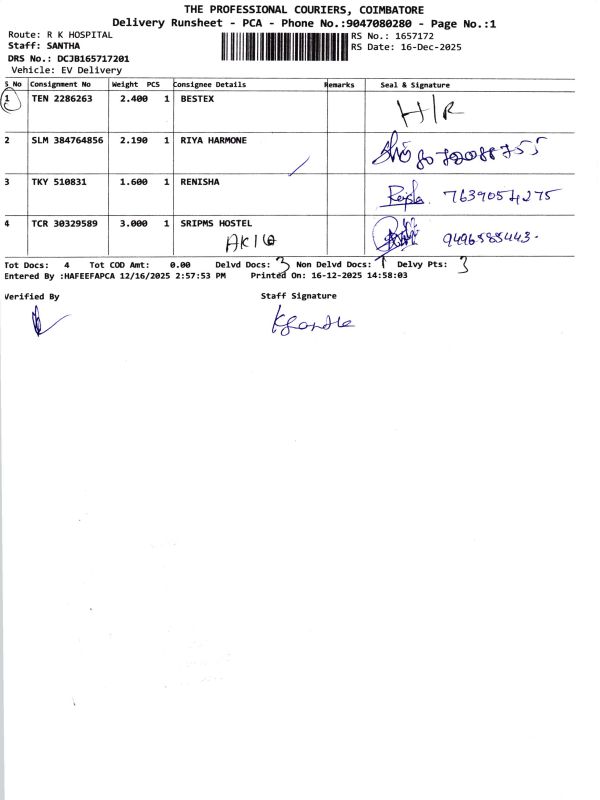 THE PROFESSIONAL COURIERS, COIMBATORE
Delivery Runsheet - PCA - Phone No.:9047080280 - Page No.:1
Route: R K HOSPITAL
Staff: SANTHA
DRS No.: DCJB165717201
Vehicle: EV Delivery
RS No.: 1657172
RS Date: 16-Dec-2025
S No Consignment No Weight PCS Consignee Details Remarks Seal & Signature
1 TEN 2286263 2.400 1 BESTEX H/R
2 SLM 384764856 2.190 1 RIYA HARMONE
3 TKY 510831 1.600 1 RENISHA 7639054275
4 TCR 30329589 3.000 1 SRIPMS HOSTEL 9496585443.
Tot Docs: 4 Tot COD Amt: 0.00 Delvd Docs: 3 Non Delvd Docs: 1 Delvy Pts: 3
Entered By :HAFEEFAPCA 12/16/2025 2:57:53 PM Printed On: 16-12-2025 14:58:03
Verified By Staff Signature